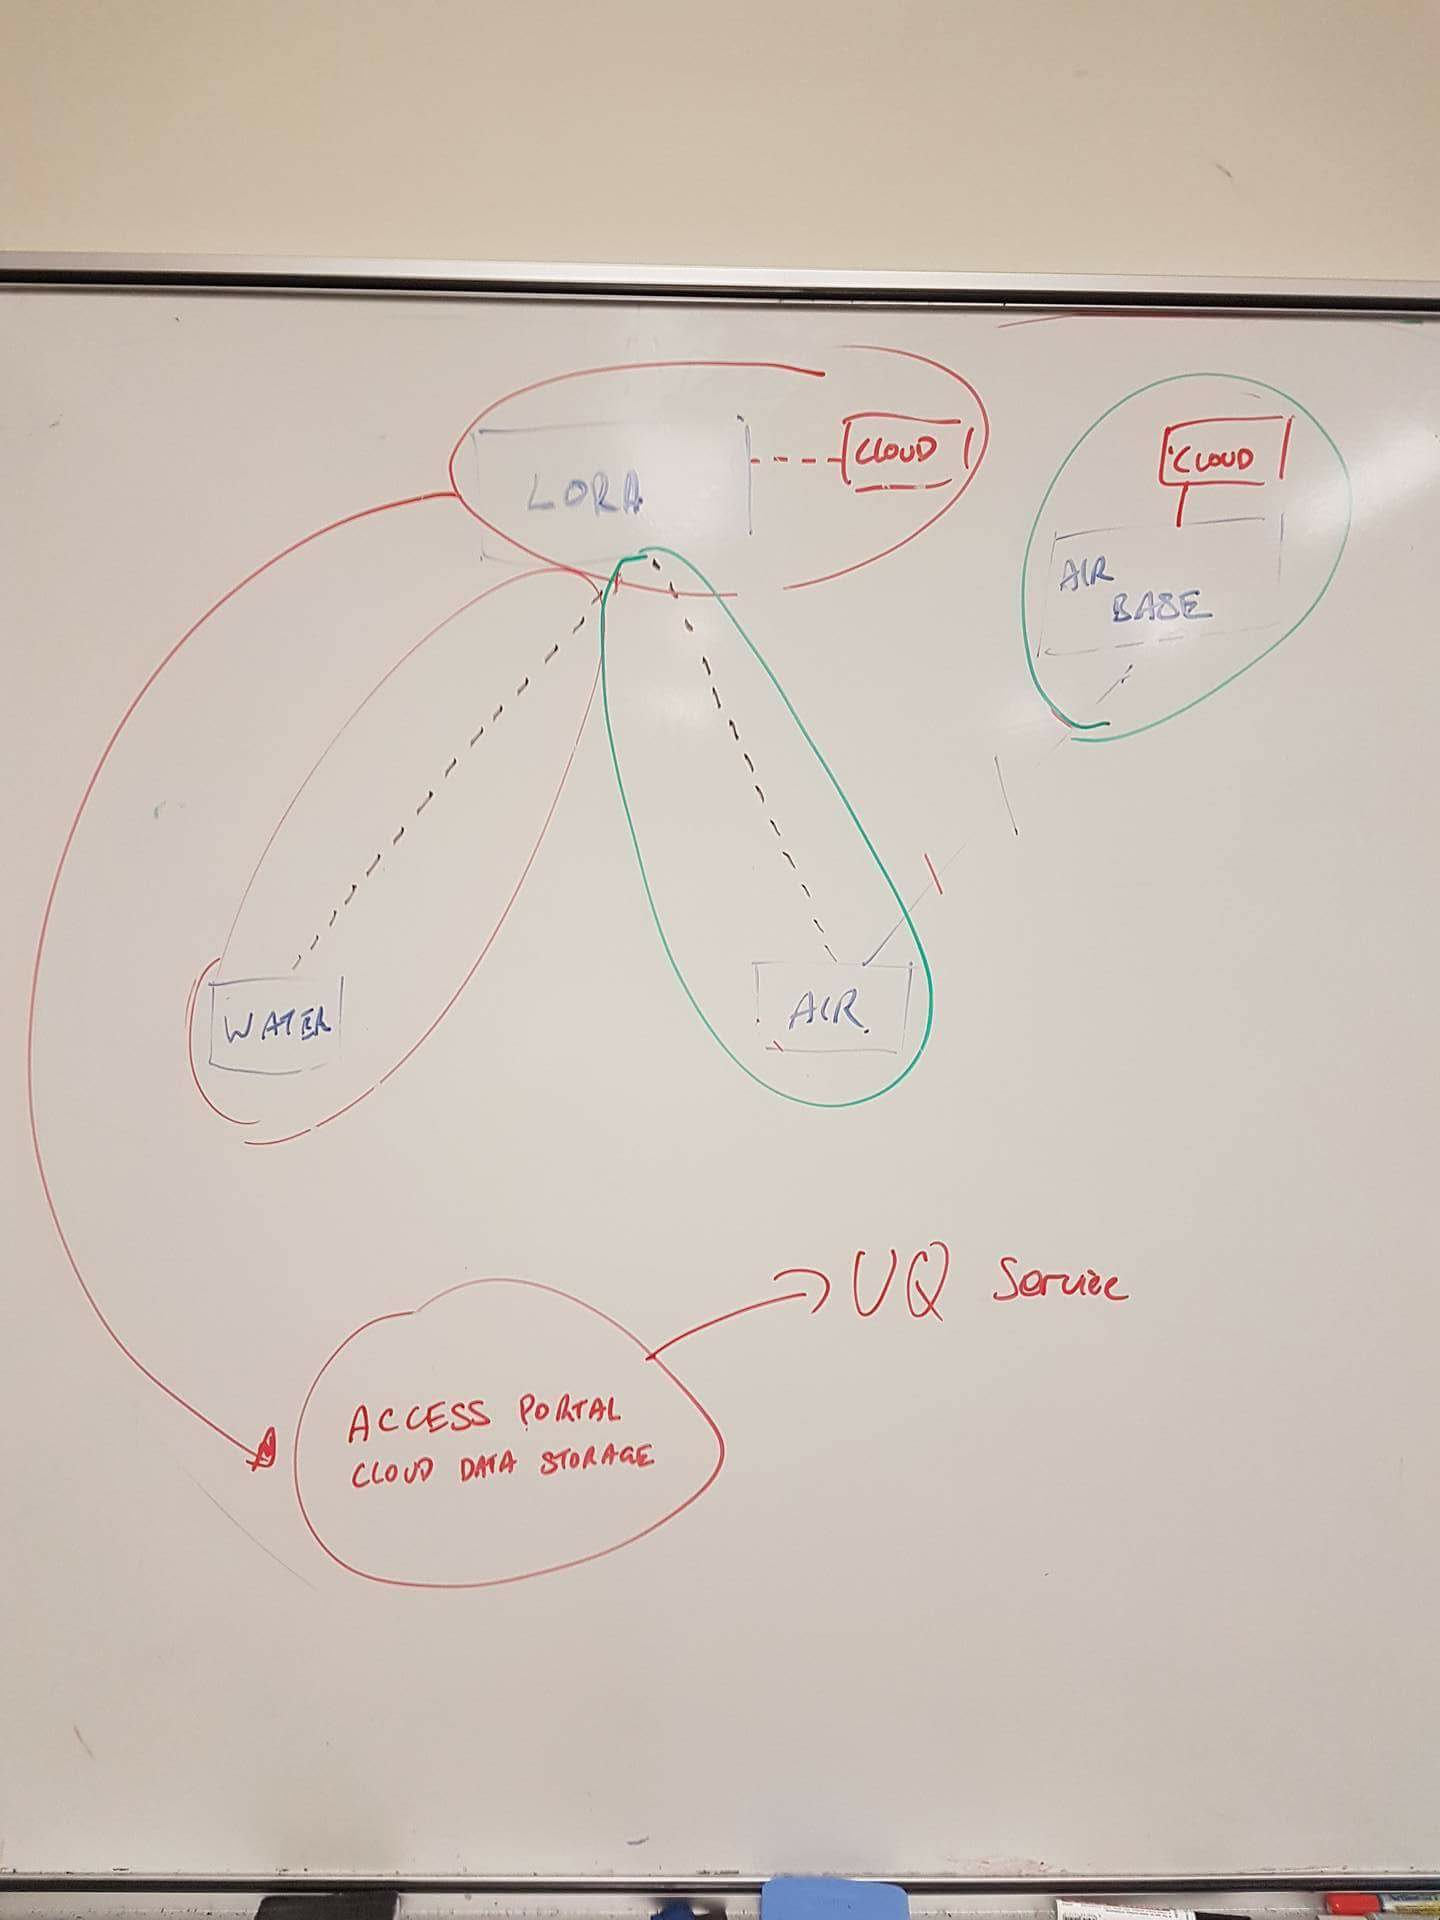 LORA
CLOUD
CLOUD
AIR
BASE
WATER
AIR
UQ Service
ACCESS PORTAL
CLOUD DATA STORAGE